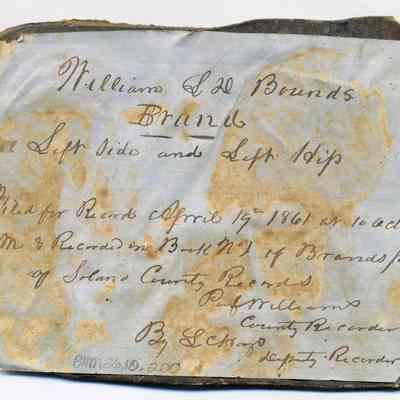 William S D Bounds
Brand
Left Side and Left Hip
Filed for Record April 19th 1861 at 10 Ocl
M & Recorded in Book No 1 of Brands
of Solano County Records
Williams
County Recorder
By
Deputy Recorder
BHM2610.200